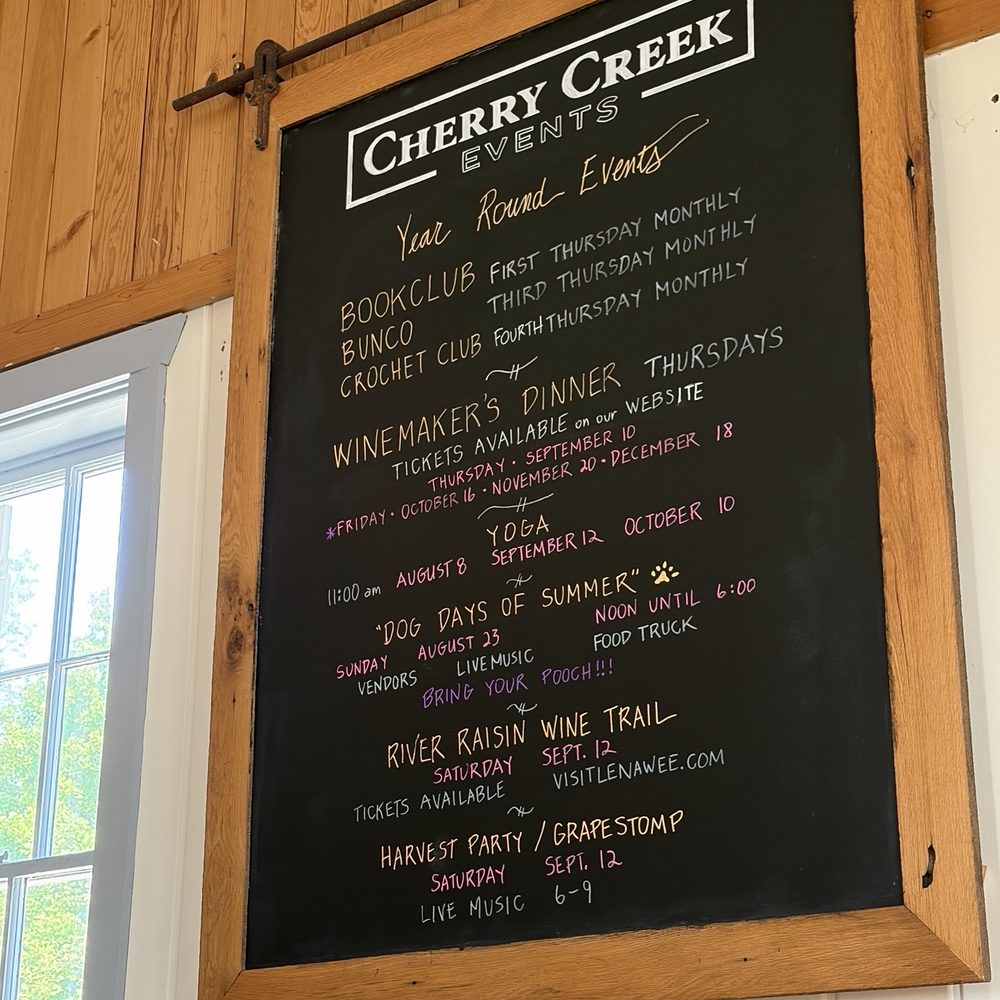 CHERRY CREEK
EVENTS
Year Round Events
BOOKCLUB FIRST THURSDAY MONTHLY
BUNCO THIRD THURSDAY MONTHLY
CROCHET CLUB FOURTH THURSDAY MONTHLY
WINEMAKER'S DINNER THURSDAYS
TICKETS AVAILABLE on our WEBSITE
THURSDAY · SEPTEMBER 10
*FRIDAY · OCTOBER 16 · NOVEMBER 20 · DECEMBER 18
YOGA
11:00 am AUGUST 8 SEPTEMBER 12 OCTOBER 10
"DOG DAYS OF SUMMER"
SUNDAY AUGUST 23 NOON UNTIL 6:00
VENDORS LIVE MUSIC FOOD TRUCK
BRING YOUR POOCH!!!
RIVER RAISIN WINE TRAIL
SATURDAY SEPT. 12
TICKETS AVAILABLE VISITLENAWEE.COM
HARVEST PARTY / GRAPESTOMP
SATURDAY SEPT. 12
LIVE MUSIC 6-9